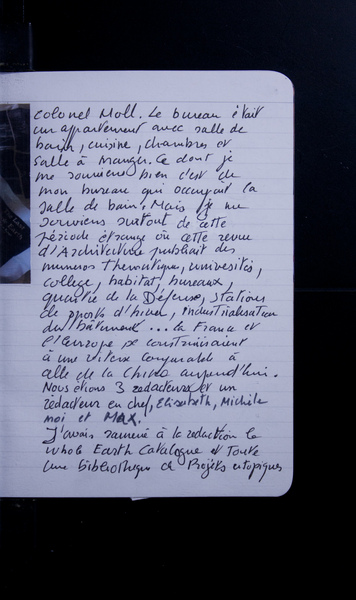 colonel Moll. Le bureau était
un appartement avec salle de
bain, cuisine, chambres et
salle à manger. Ce dont je
me souviens bien c'est de
mon bureau qui occupait la
salle de bain. Mais je me
souviens surtout de cette
période étrange où cette revue
d'Architecture publiait des
numéros thématiques, universités,
collège, habitat, bureaux,
quartier de la Défense, stations
de sports d'hiver, industrialisation
du bâtiment ... la France et
l'Europe se construisaient
à une vitesse comparable à
celle de la Chine aujourd'hui.
Nous étions 3 rédacteurs et un
rédacteur en chef, Elisabeth, Michèle
moi et MAX.
J'avais ramené à la rédaction le
whole Earth Catalogue et toute
une bibliothèque de Projets utopiques